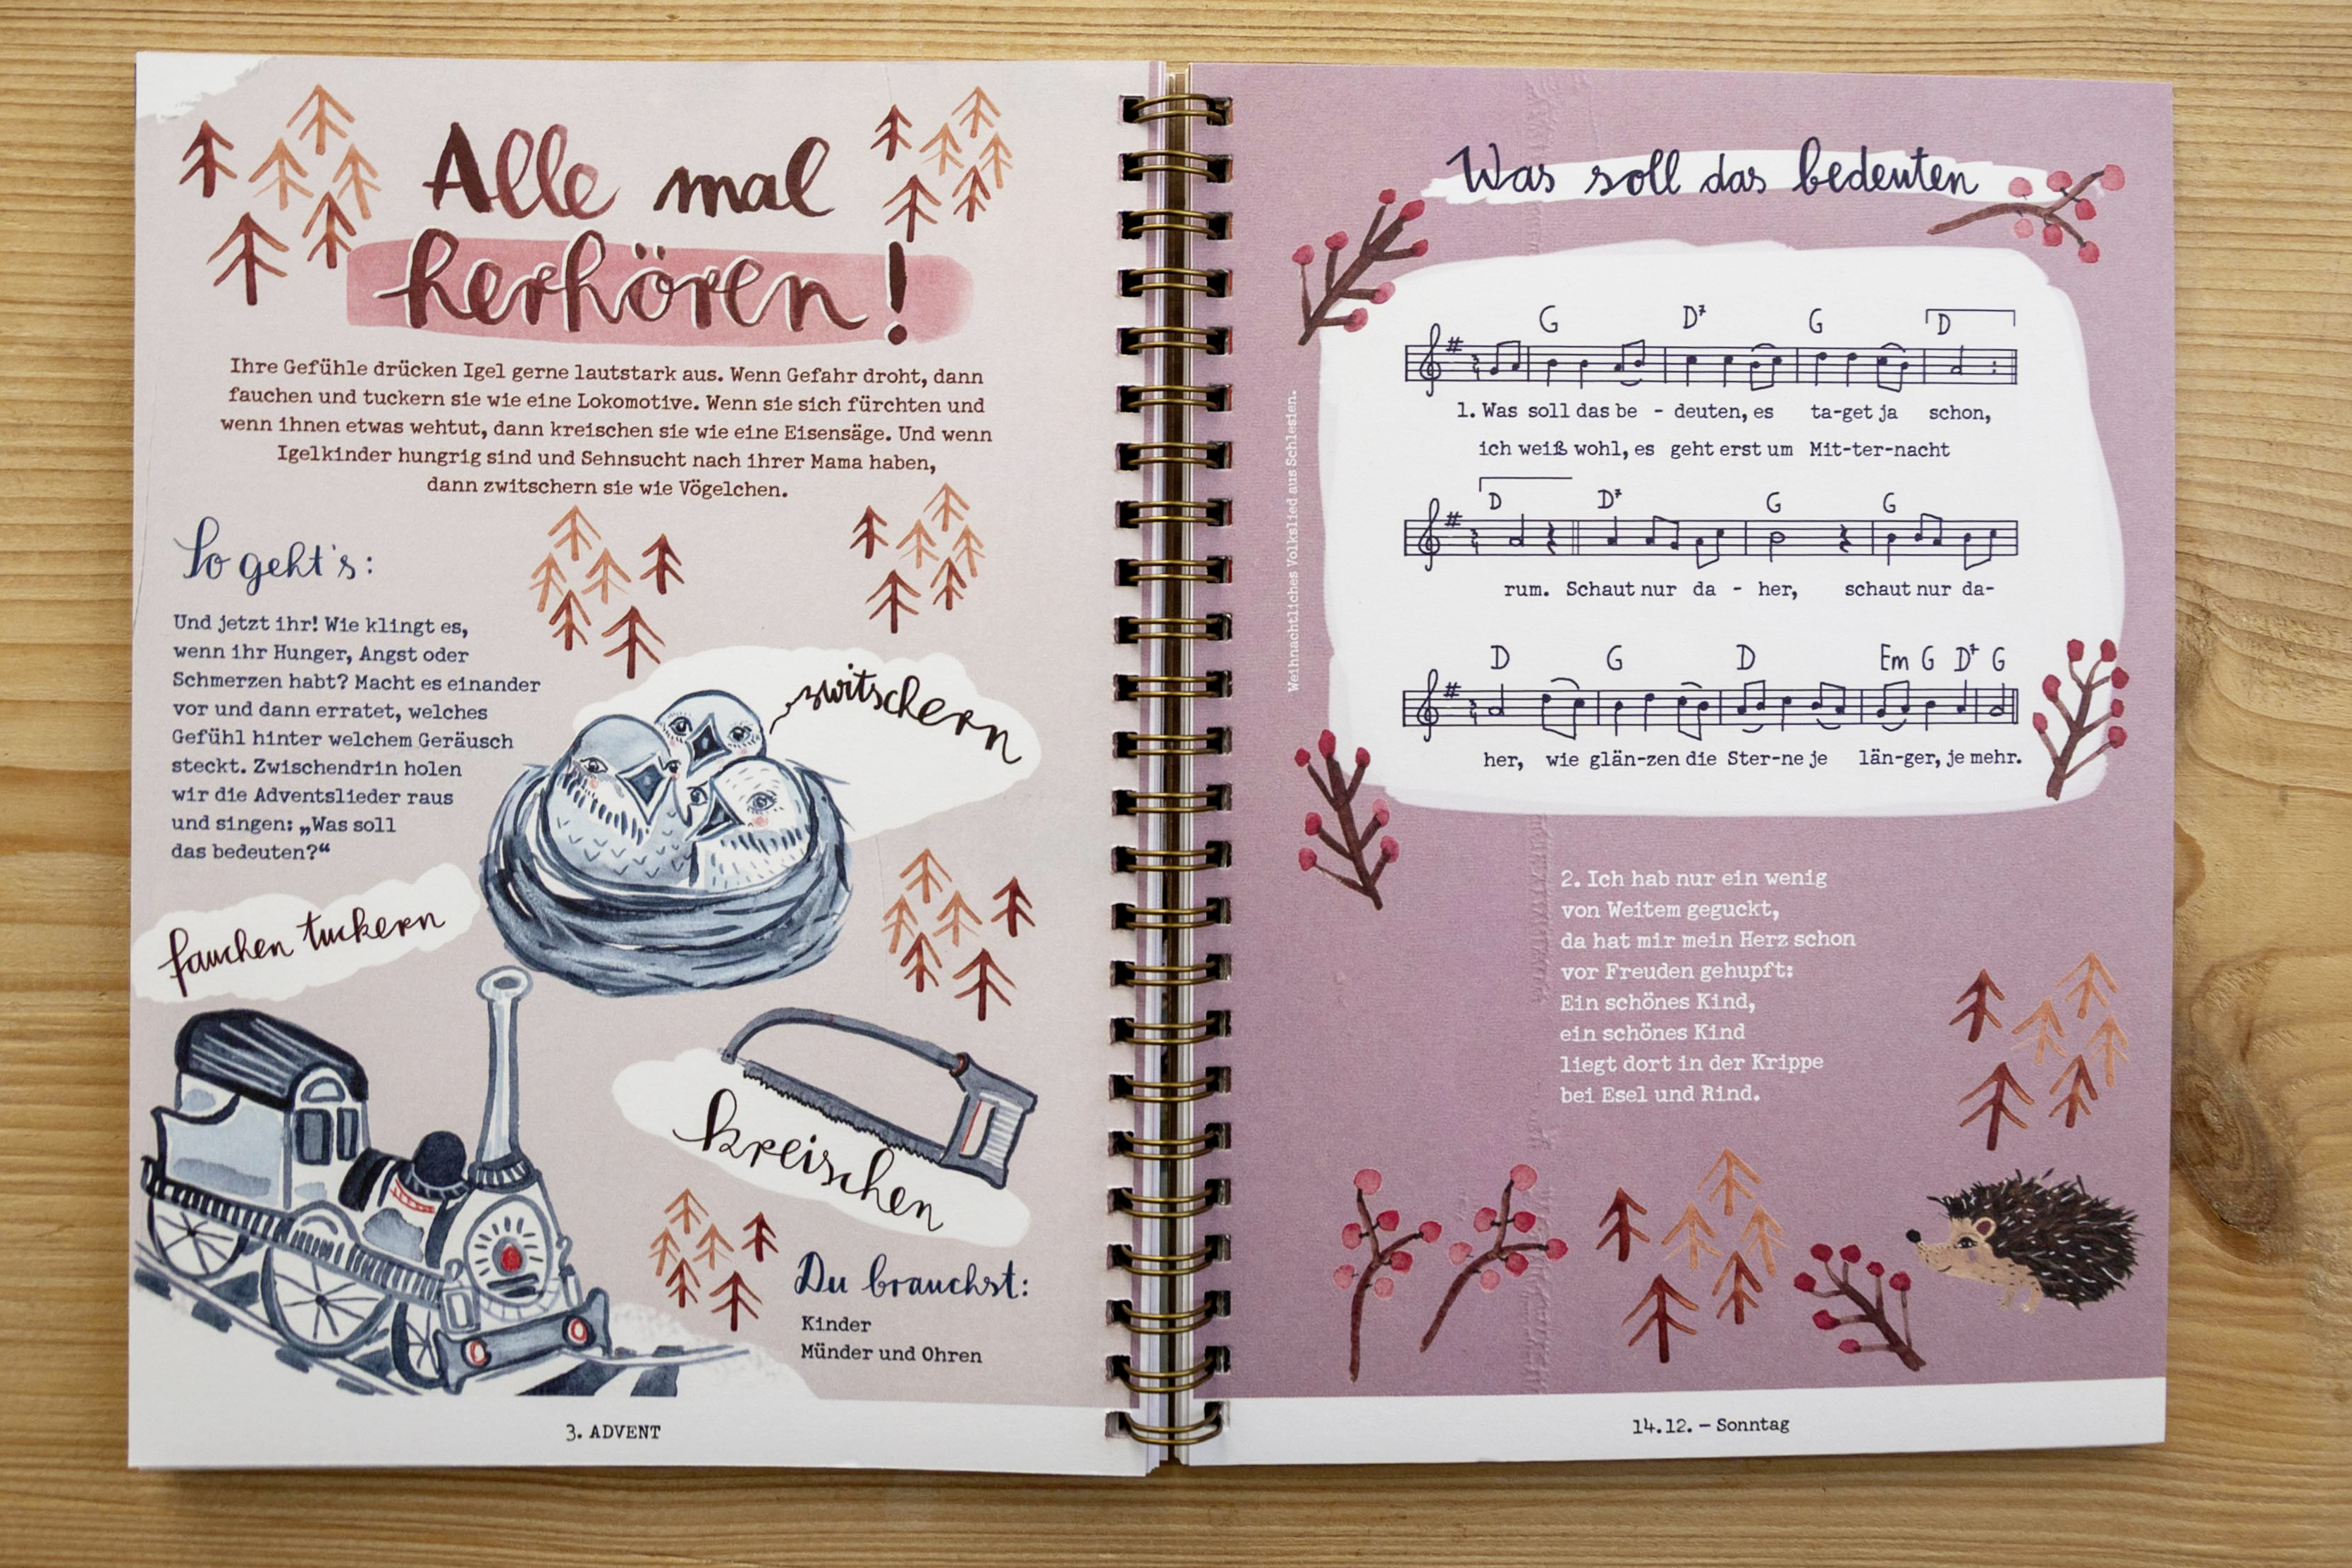 Alle mal
herhören!
Ihre Gefühle drücken Igel gerne lautstark aus. Wenn Gefahr droht, dann
fauchen und tuckern sie wie eine Lokomotive. Wenn sie sich fürchten und
wenn ihnen etwas wehtut, dann kreischen sie wie eine Eisensäge. Und wenn
Igelkinder hungrig sind und Sehnsucht nach ihrer Mama haben,
dann zwitschern sie wie Vögelchen.
So geht's:
Und jetzt ihr! Wie klingt es,
wenn ihr Hunger, Angst oder
Schmerzen habt? Macht es einander
vor und dann erratet, welches
Gefühl hinter welchem Geräusch
steckt. Zwischendrin holen
wir die Adventslieder raus
und singen: „Was soll
das bedeuten?“
zwitschern
fauchen tuckern
kreischen
Du brauchst:
Kinder
Münder und Ohren
3. ADVENT
Was soll das bedeuten
Weihnachtliches Volkslied aus Schlesien.
G D⁷ G D
1. Was soll das be - deuten, es ta-get ja schon,
ich weiß wohl, es geht erst um Mit-ter-nacht
D D⁷ G G
rum. Schaut nur da - her, schaut nur da-
D G D Em G D⁷ G
her, wie glän-zen die Ster-ne je län-ger, je mehr.
2. Ich hab nur ein wenig
von Weitem geguckt,
da hat mir mein Herz schon
vor Freuden gehupft:
Ein schönes Kind,
ein schönes Kind
liegt dort in der Krippe
bei Esel und Rind.
14.12. – Sonntag